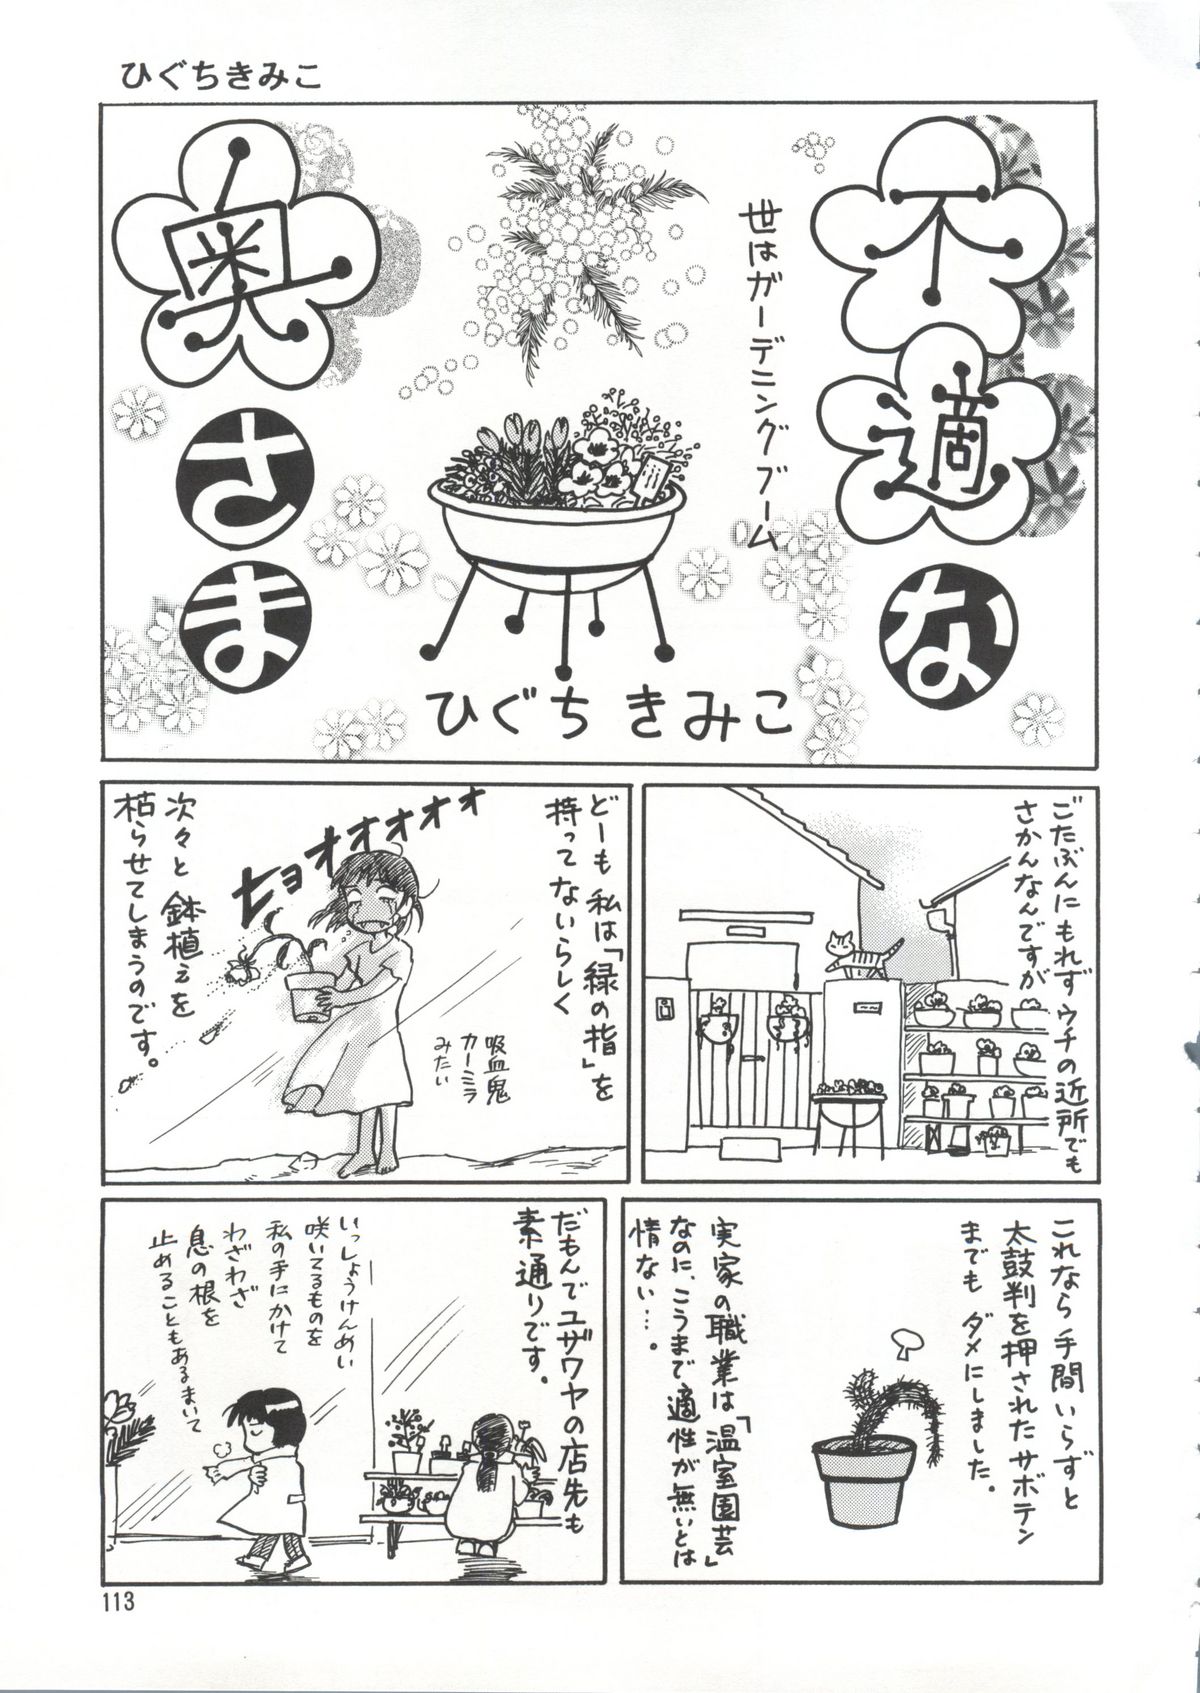 ひぐちきみこ
不適な
奥さま
世はガーデニングブーム
ひぐち きみこ
ごたぶんにもれず ウチの近所でも
さかんなんですが
どーも 私は「緑の指」を
持って ないらしく
ヒョオオオオォォ
吸血鬼
カーミラ
みたい
次々と 鉢植えを
枯らせてしまうのです。
これなら 手間いらずと
太鼓判を押された サボテン
までも ダメにしました。
実家の職業は「温室園芸」
なのに、こうまで 適性が無いとは
情ない…。
だもんで ユザワヤの店先も
素通りです。
いっしょうけんめい
咲いてるものを
私の手にかけて
わざわざ
息の根を
止めることもあるまいて
113